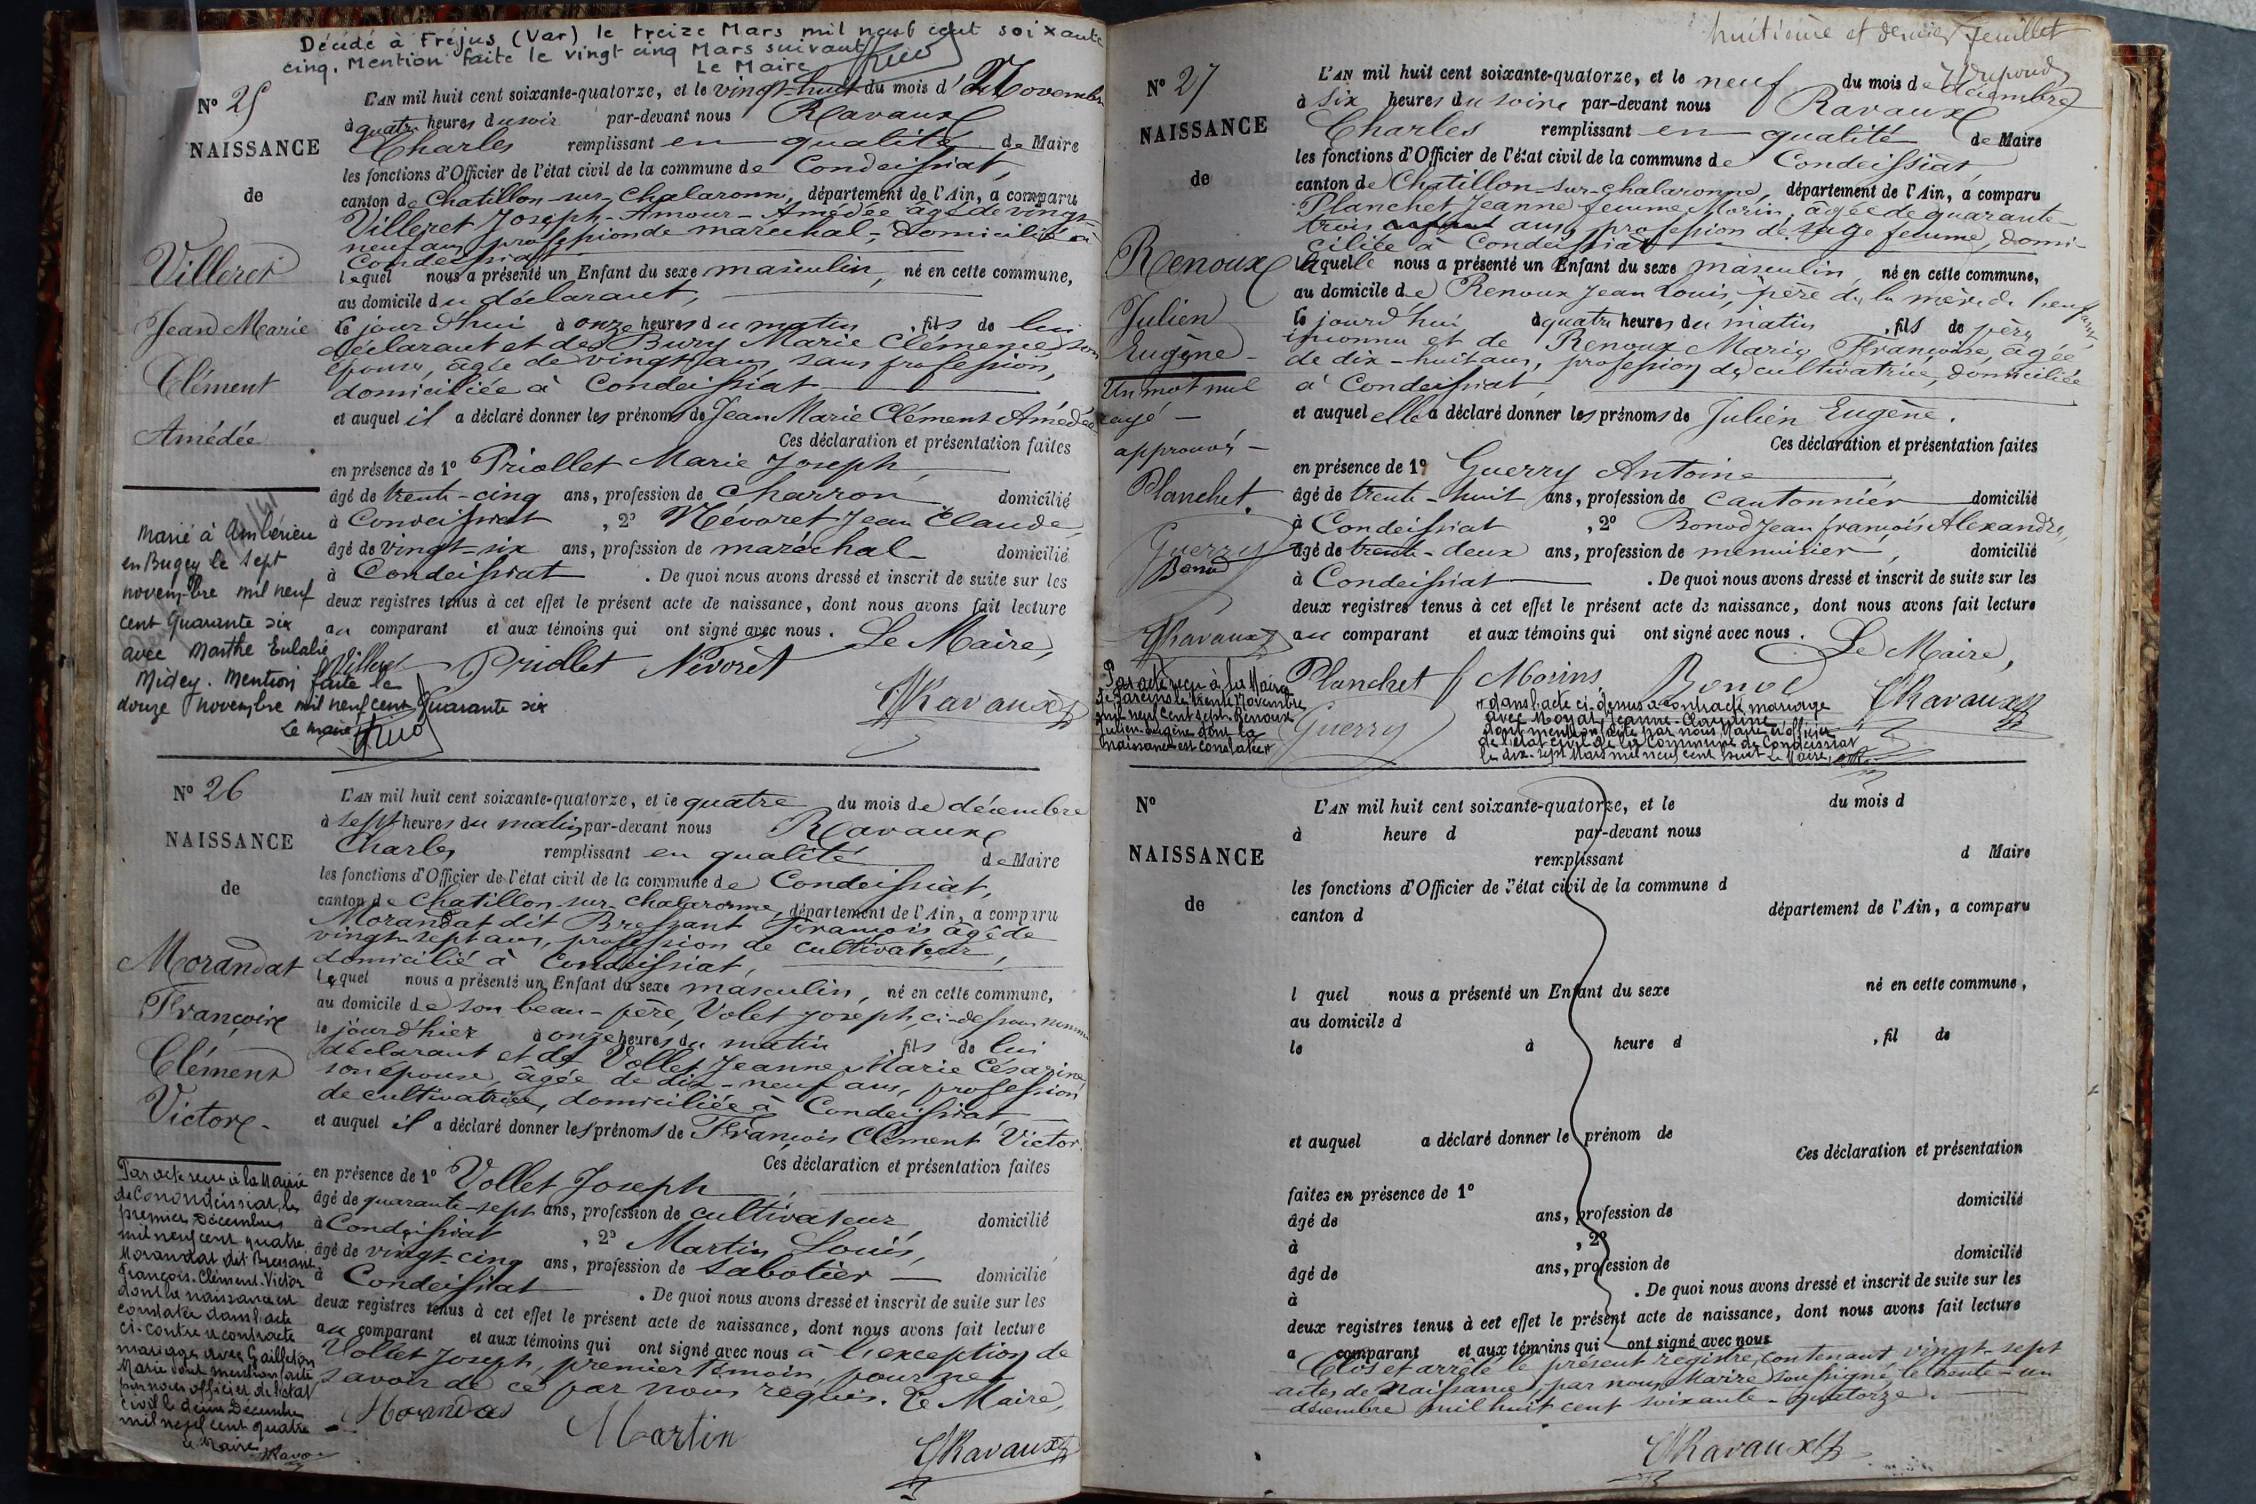 Décédé à Fréjus (Var) le treize Mars mil neuf cent soixante
cinq. Mention faite le vingt cinq Mars suivant
Le Maire
N° 25
NAISSANCE
de
Villeret
Jean Marie
Clément
Amédée
L'AN mil huit cent soixante-quatorze, et le vingt-huit du mois d Novembre
à quatre heures du soir par-devant nous Ravaux
Charles remplissant en qualité de Maire
les fonctions d'Officier de l'état civil de la commune de Condeissiat,
canton de Chatillon-sur-Chalaronne, département de l'Ain, a comparu
Villeret Joseph-Amour-Amédée âgé de vingt-
neuf ans, profession de maréchal, domicilié à
Condeissiat
lequel nous a présenté un Enfant du sexe masculin, né en cette commune,
au domicile du déclarant,
le jourd'hui à onze heures du matin, fils de lui
déclarant et de Bury Marie Clémence son
épouse, âgée de vingt ans, sans profession,
domiciliée à Condeissiat
et auquel il a déclaré donner les prénoms de Jean Marie Clément Amédée
Ces déclaration et présentation faites
en présence de 1° Priollet Marie Joseph,
âgé de trente-cinq ans, profession de charron domicilié
à Condeissiat, 2° Névoret Jean Claude,
âgé de vingt-six ans, profession de maréchal domicilié
à Condeissiat. De quoi nous avons dressé et inscrit de suite sur les
deux registres tenus à cet effet le présent acte de naissance, dont nous avons fait lecture
au comparant et aux témoins qui ont signé avec nous. Le Maire,
Villeret Priollet Névoret
Ravaux
Marié à Ambérieu
en Bugey le sept
novembre mil neuf
cent quarante six
avec Marthe Eulalie
Midey. Mention faite le
douze novembre mil neuf cent quarante six
Le maire
N° 26
NAISSANCE
de
Morandat
François
Clément
Victor
L'AN mil huit cent soixante-quatorze, et le quatre du mois de décembre
à sept heures du matin par-devant nous Ravaux
Charles remplissant en qualité de Maire
les fonctions d'Officier de l'état civil de la commune de Condeissiat,
canton de Chatillon-sur-Chalaronne, département de l'Ain, a comparu
Morandat dit Bressant François âgé de
vingt-sept ans, profession de cultivateur,
domicilié à Condeissiat,
lequel nous a présenté un Enfant du sexe masculin, né en cette commune,
au domicile de son beau-père, Volet Joseph, ci-dessous nommé
le jourd'hier à onze heures du matin, fils de lui
déclarant et de Vollet Jeanne Marie Césarine
son épouse, âgée de dix-neuf ans, profession
de cultivatrice, domiciliée à Condeissiat
et auquel il a déclaré donner les prénoms de François Clément Victor.
Ces déclaration et présentation faites
en présence de 1° Vollet Joseph,
âgé de quarante-sept ans, profession de cultivateur domicilié
à Condeissiat, 2° Martin Louis,
âgé de vingt-cinq ans, profession de sabotier domicilié
à Condeissiat. De quoi nous avons dressé et inscrit de suite sur les
deux registres tenus à cet effet le présent acte de naissance, dont nous avons fait lecture
au comparant et aux témoins qui ont signé avec nous à l'exception de
Vollet Joseph, premier témoin, pour ne
savoir de ce par nous requis. Le Maire,
Morandat
Martin
Ravaux
Par acte reçu à la Mairie
de Condeissiat, le
premier Décembre
mil neuf cent quatre
Morandat dit Bressant
François-Clément-Victor
dont la naissance est
constatée dans l'acte
ci-contre a contracté
mariage avec Gailleton
Marie dont mention faite
par nous officier de l'état
civil le deux Décembre
mil neuf cent quatre
Le Maire
huitième et dernier feuillet
N° 27
NAISSANCE
de
Renoux
Julien
Eugène
Un mot nul
rayé
approuvés
Planchet
Guerry
Bonod
Ravaux
L'AN mil huit cent soixante-quatorze, et le neuf du mois de décembre
à six heures du soir par-devant nous Ravaux
Charles remplissant en qualité de Maire
les fonctions d'Officier de l'état civil de la commune de Condeissiat,
canton de Chatillon-sur-Chalaronne, département de l'Ain, a comparu
Planchet Jeanne femme Morin, âgée de quarante
trois ans, profession de sage femme, domi-
ciliée à Condeissiat
laquelle nous a présenté un Enfant du sexe masculin, né en cette commune,
au domicile de Renoux Jean Louis, père de la mère de l'enfant,
le jourd'hui à quatre heures du matin, fils de père
inconnu et de Renoux Marie Françoise, âgée
de dix-huit ans, profession de cultivatrice, domiciliée
à Condeissiat
et auquel elle a déclaré donner les prénoms de Julien Eugène.
Ces déclaration et présentation faites
en présence de 1° Guerry Antoine
âgé de trente-huit ans, profession de cantonnier domicilié
à Condeissiat, 2° Bonod Jean François Alexandre,
âgé de trente-deux ans, profession de menuisier, domicilié
à Condeissiat. De quoi nous avons dressé et inscrit de suite sur les
deux registres tenus à cet effet le présent acte de naissance, dont nous avons fait lecture
au comparant et aux témoins qui ont signé avec nous. Le Maire,
Planchet f Morin Bonod Ravaux
Guerry
Par acte reçu à la Mairie
de le trente Novembre
mil neuf cent sept Renoux
Julien-Eugène dont la
naissance est constatée
dans l'acte ci-dessus a contracté mariage
avec Moyat Jeanne-Claudine
dont mention faite par nous Maire et officier
de l'état civil de la Commune de Condeissiat
le dix-sept Mars mil neuf cent huit Le Maire,
N°
NAISSANCE
de
L'AN mil huit cent soixante-quatorze, et le du mois d
à heure d par-devant nous
remplissant d Maire
les fonctions d'Officier de l'état civil de la commune d
canton d département de l'Ain, a comparu
l quel nous a présenté un Enfant du sexe né en cette commune,
au domicile d
le à heure d , fil de
et auquel a déclaré donner le prénom de
Ces déclaration et présentation
faites en présence de 1°
âgé de ans, profession de domicilié
à , 2°
âgé de ans, profession de domicilié
à . De quoi nous avons dressé et inscrit de suite sur les
deux registres tenus à cet effet le présent acte de naissance, dont nous avons fait lecture
a comparant et aux témoins qui ont signé avec nous
Clos et arrêté le présent registre, contenant vingt-sept
actes de naissance, par nous Maire soussigné, le trente-un
décembre mil huit cent soixante-quatorze.
Ravaux